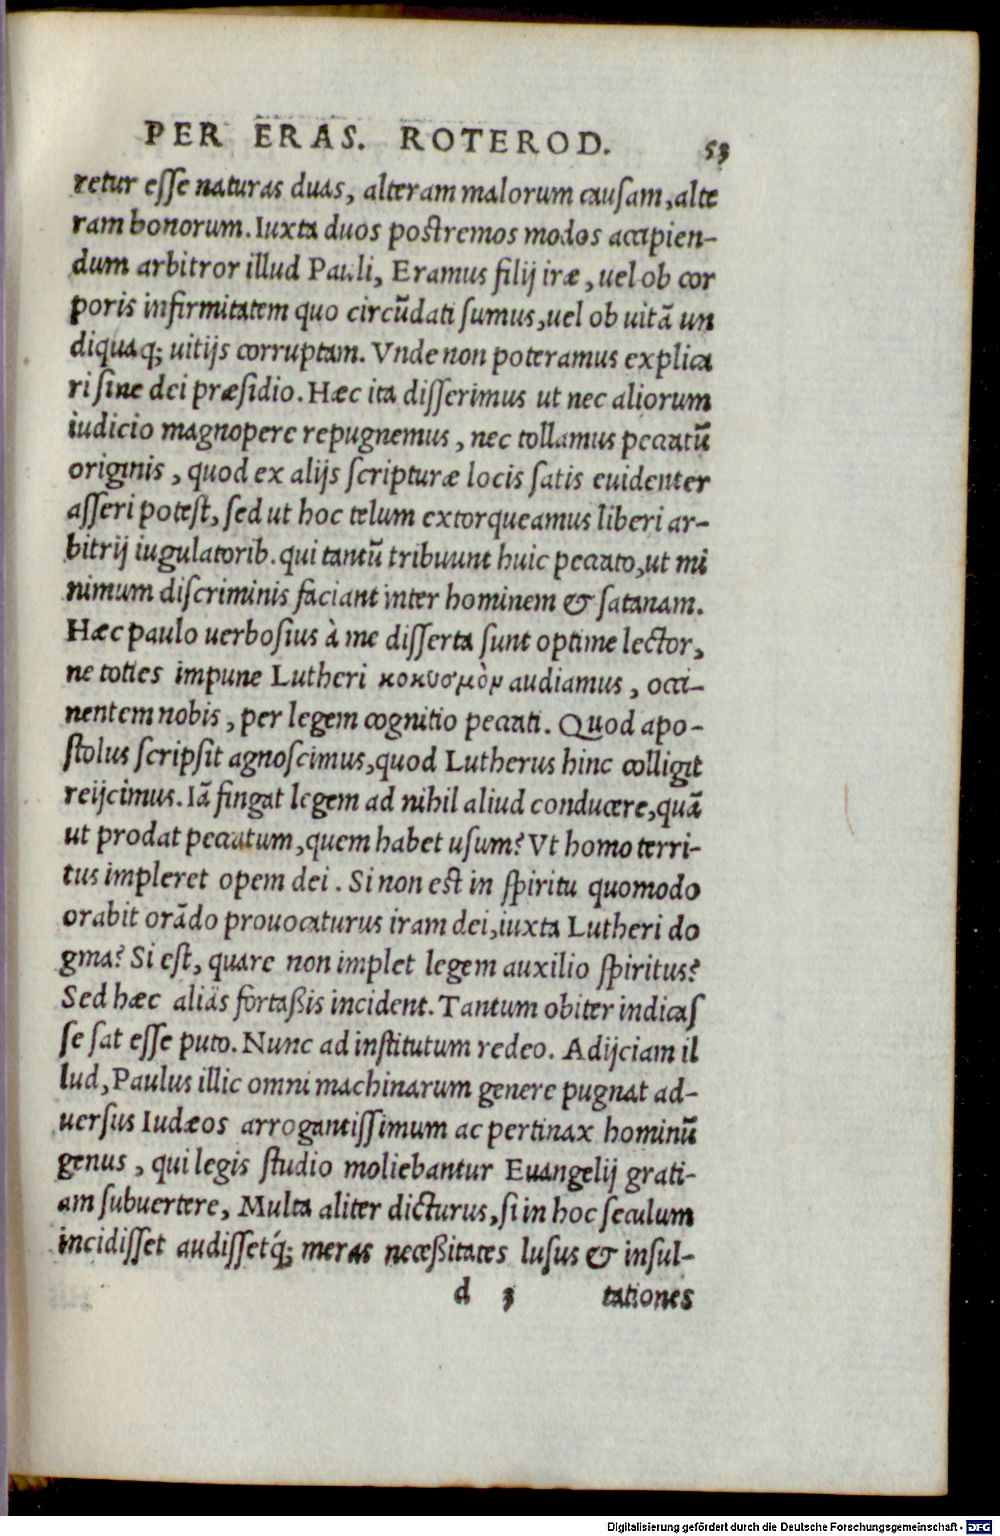 PER ERAS. ROTEROD. 53
retur esse naturas duas, alteram malorum causam, alte
ram bonorum. Iuxta duos postremos modos accipien-
dum arbitror illud Pauli, Eramus filij iræ, uel ob cor
poris infirmitatem quo circūdati sumus, uel ob uitā un
diquaq; uitijs corruptam. Vnde non poteramus explica
ri sine dei præsidio. Hæc ita disserimus ut nec aliorum
iudicio magnopere repugnemus, nec tollamus peccatū
originis, quod ex alijs scripturæ locis satis euidenter
asseri potest, sed ut hoc telum extorqueamus liberi ar-
bitrij iugulatorib. qui tantū tribuunt huic peccato, ut mi
nimum discriminis faciant inter hominem & satanam.
Hæc paulo uerbosius à me disserta sunt optime lector,
ne toties impune Lutheri κοκυσμὸν audiamus, occi-
nentem nobis, per legem cognitio peccati. Quod apo-
stolus scripsit agnoscimus, quod Lutherus hinc colligit
reijcimus. Iā fingat legem ad nihil aliud conducere, quā
ut prodat peccatum, quem habet usum? Vt homo terri-
tus impleret opem dei. Si non est in spiritu quomodo
orabit orādo prouocaturus iram dei, iuxta Lutheri do
gma? Si est, quare non implet legem auxilio spiritus?
Sed hæc aliâs fortaßis incident. Tantum obiter indicas
se sat esse puto. Nunc ad institutum redeo. Adijciam il
lud, Paulus illic omni machinarum genere pugnat ad-
uersus Iudæos arrogantissimum ac pertinax hominū
genus, qui legis studio moliebantur Euangelij grati-
am subuertere, Multa aliter dicturus, si in hoc seculum
incidisset audissetq́; meras necessitates lusus & insul-
d 3 tationes
Digitalisierung gefördert durch die Deutsche Forschungsgemeinschaft - DFG